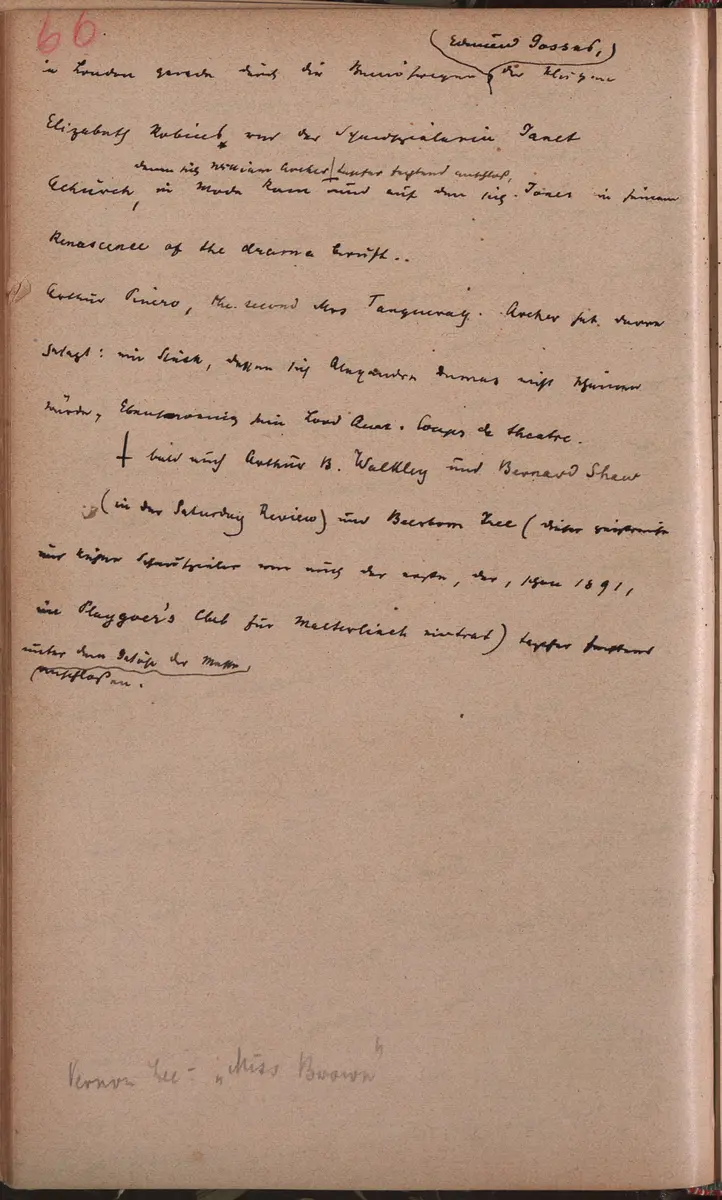 66
(Edmund Gosses,)
in London gerade durch die Bemühungen der klugen
Elizabeth Robins und der Schauspielerin Janet
denen sich William Archer tapfer anschloß,
Achurch, in Mode kam und auf den sich Jones in seinem
Renascence of the drama beruft..
Arthur Pinero, the second Mrs Tanqueray. Archer hat davon
gesagt: ein Stück, dessen sich Alexandre Dumas nicht schämen
würde, Ebensowenig sein Lord Quex. Coups de theatre.
† bald auch Arthur B. Walkley und Bernard Shaw
(in der Saturday Review) und Beerbom Tree (dieser
Schauspieler war auch der erste, der, schon 1891,
im Playgoer's Club für Maeterlinck eintrat) tapfer
unter dem Getöse der Menge,
anschloßen.
Vernon Lee - „Miss Brown"